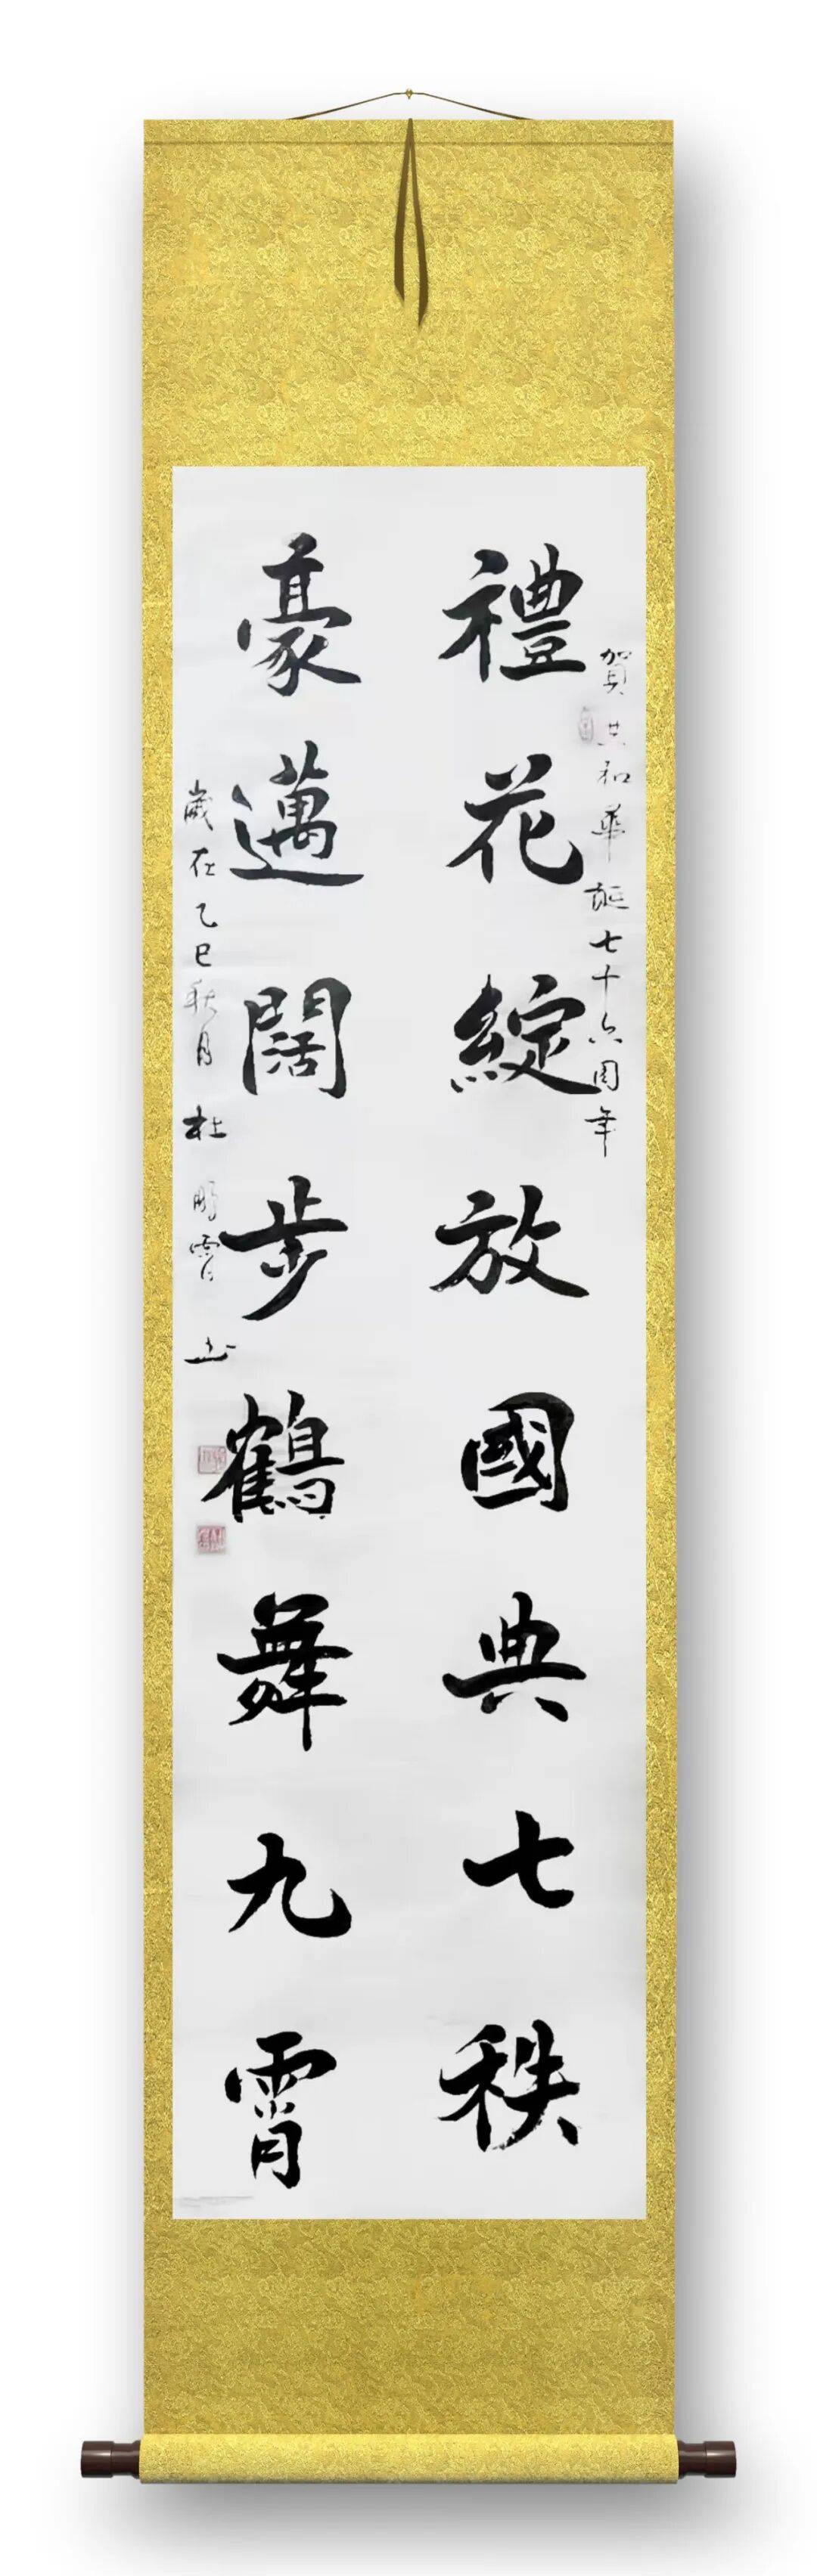 賀共和華誕七十六周年
禮花綻放國典七秩
豪邁闊步鶴舞九霄
歲在乙巳秋月杜鵬霄書